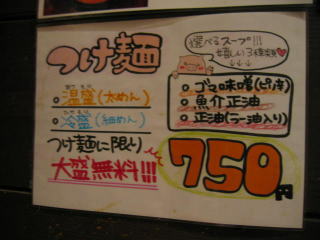 つけ麺
○温盛(太めん)
○冷盛(細めん)
つけ麺に限り
大盛無料!!!
選べるスープ!!!
嬉しい3種類♥
↓↓↓
○ゴマ味噌(ピリ辛)
○魚介正油
○正油(ラー油入り)
750円